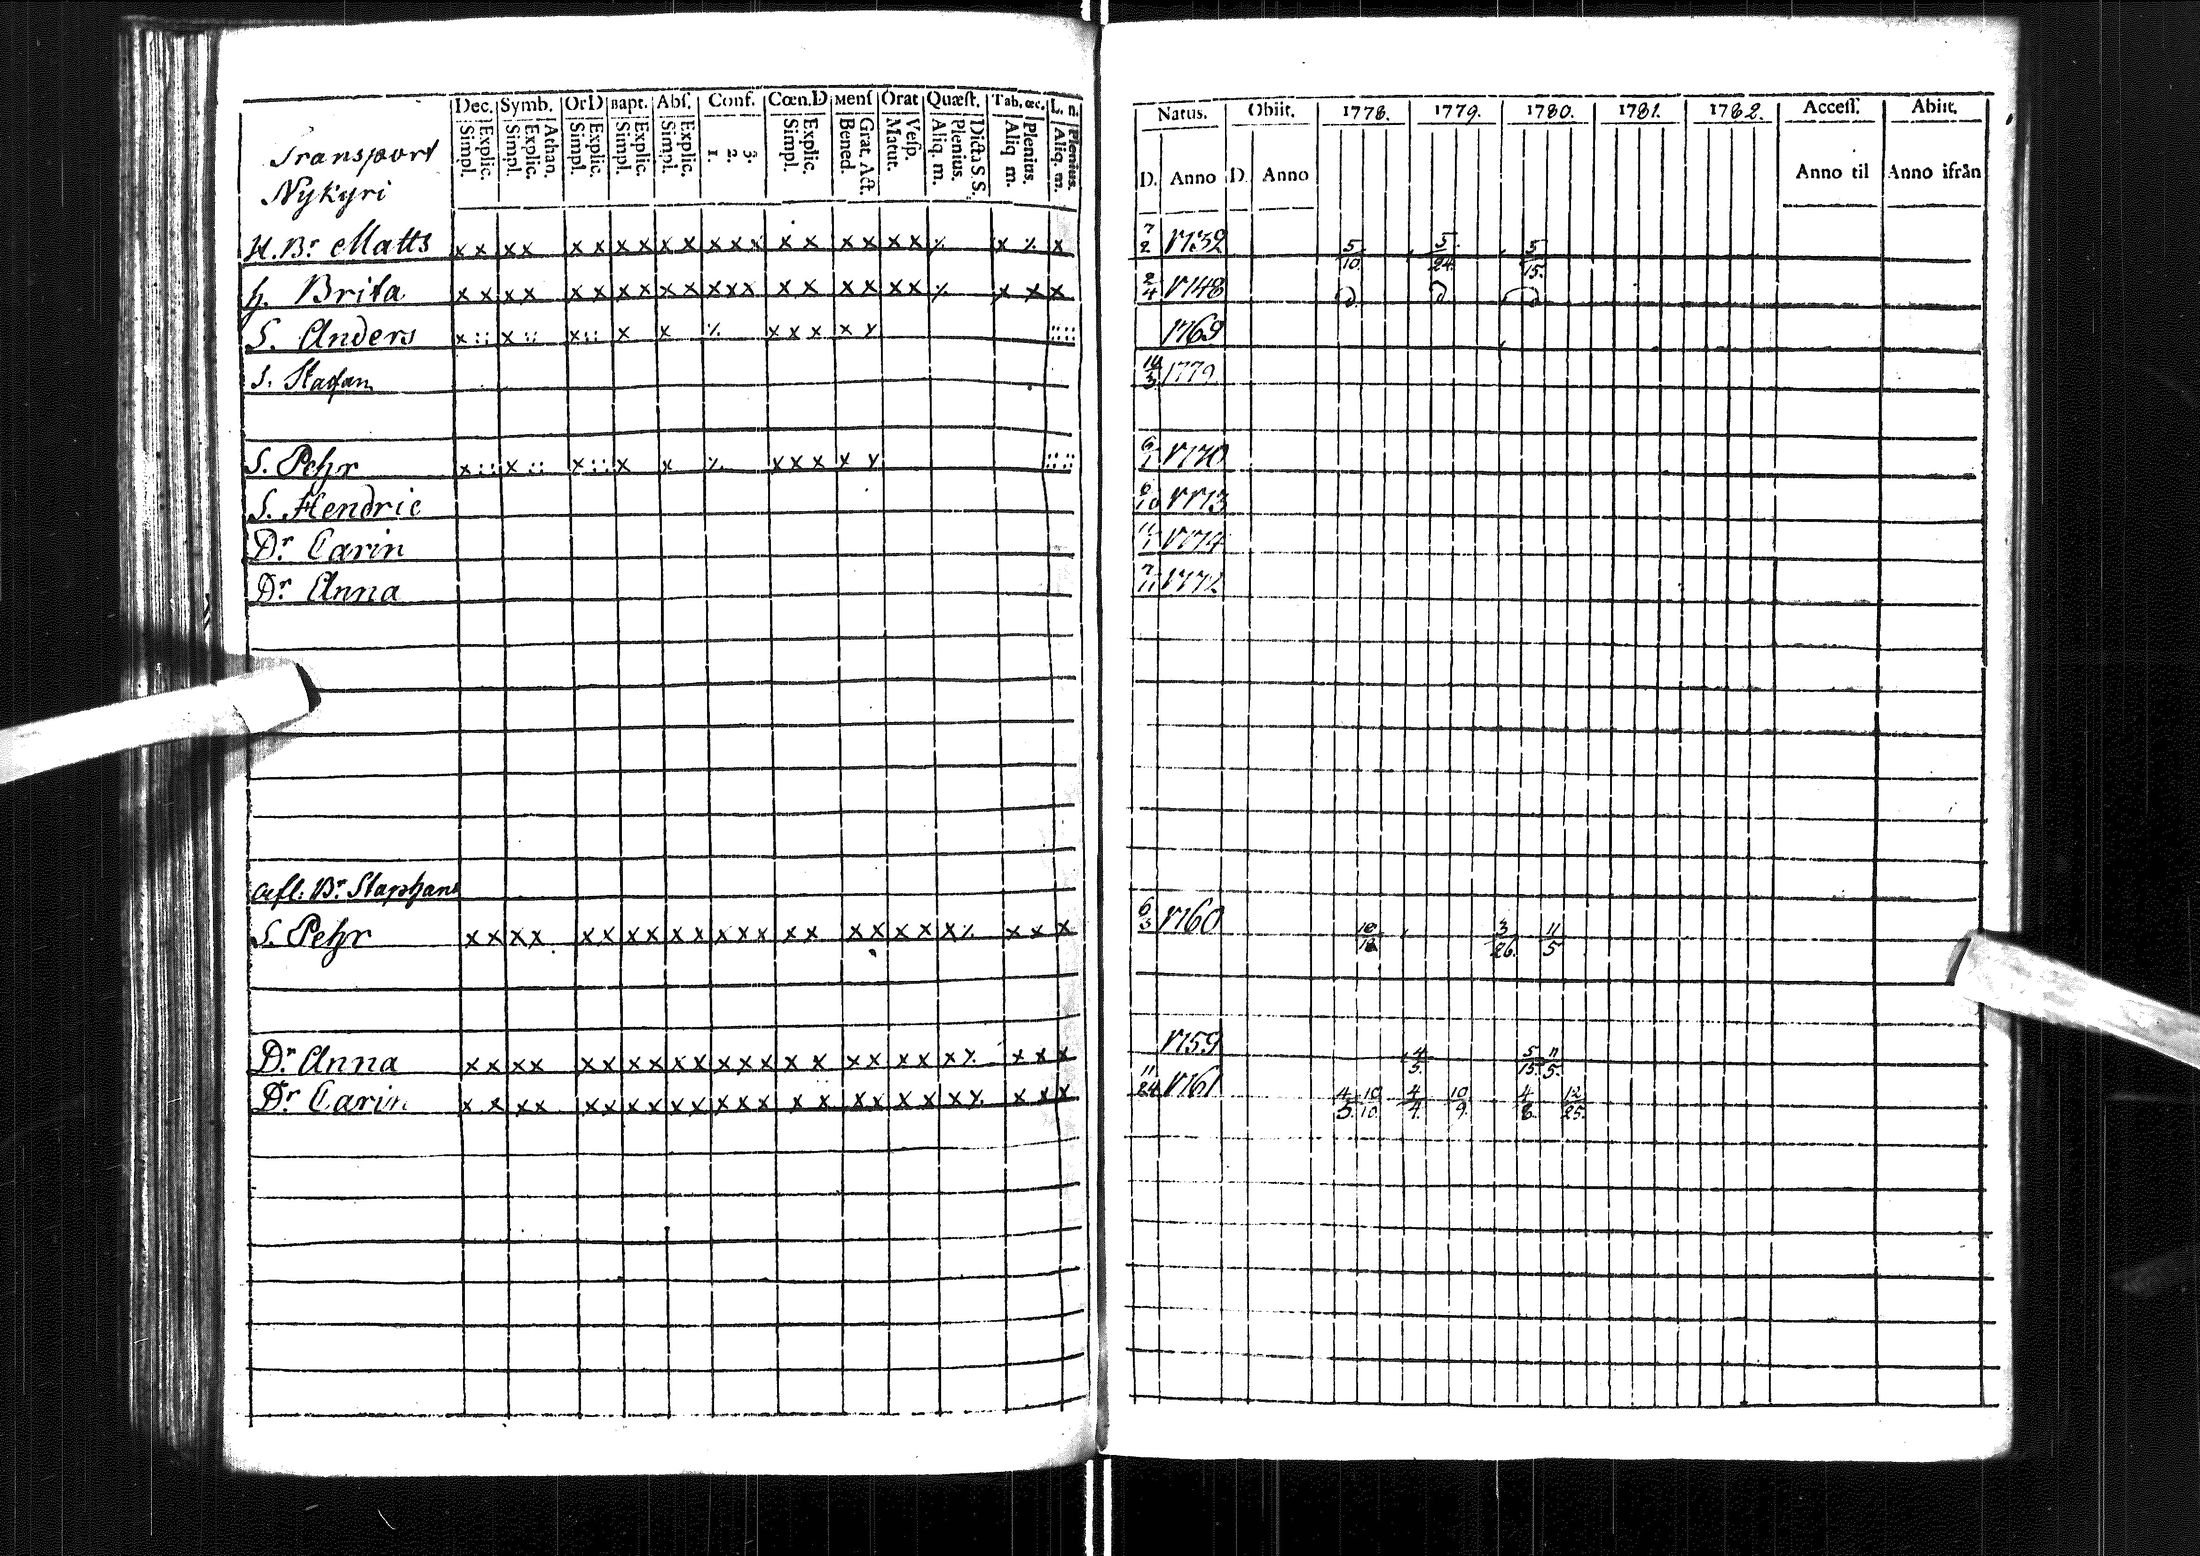 Dec. Symb. OrD Bapt. Abſ. Conf. Cœn.D Menſ Orat Quæſt. Tab, œc. L. n.
Simpl. Explic. Simpl. Explic. Athan. Simpl. Explic. Simpl. Explic. Simpl. Explic. 1. 2. 3. Simpl. Explic. Bened. Grat. Act. Matut. Veſp. Aliq. m. Plenius. Dicta S.S. Aliq m. Plenius. Aliq. m. Plenius.
Transport
Nykyri
H. Br Matts x x x x x x x x x x x x x x x x x x x ⁒ x ⁒ x
h. Brita x x x x x x x x x x x x x x x x x x x ⁒ x x x
S. Anders x :: x :: x :: x x ⁒ x x x x x ::::
S. Stafan
S. Pehr x :: x :: x :: x x ⁒ x x x x x ::::
S. Hendric
Dr Carin
Dr Anna
afl: Br. Staphans
S. Pehr x x x x x x x x x x x x x x x x x x x x ⁒ x x x
Dr Anna x x x x x x x x x x x x x x x x x x x x ⁒ x x x
Dr Carin x x x x x x x x x x x x x x x x x x x x ⁒ x x x
Natus. Obiit. 1778. 1779. 1780. 1781. 1782. Acceſſ. Abiit.
D. Anno D. Anno Anno til Anno ifrån
7/2 1732 5/10. 5/24. 5/15.
2/4 1748
1769
14/3 1779
6/1 1770
6/10 1773
11/1 1774
7/11 1772
6/3 1760 10/18 3/26. 11/5
1759 4/5. 5/15. 11/5.
11/24 1761 4/5 10/10. 4/4. 10/9. 4/8. 12/25.